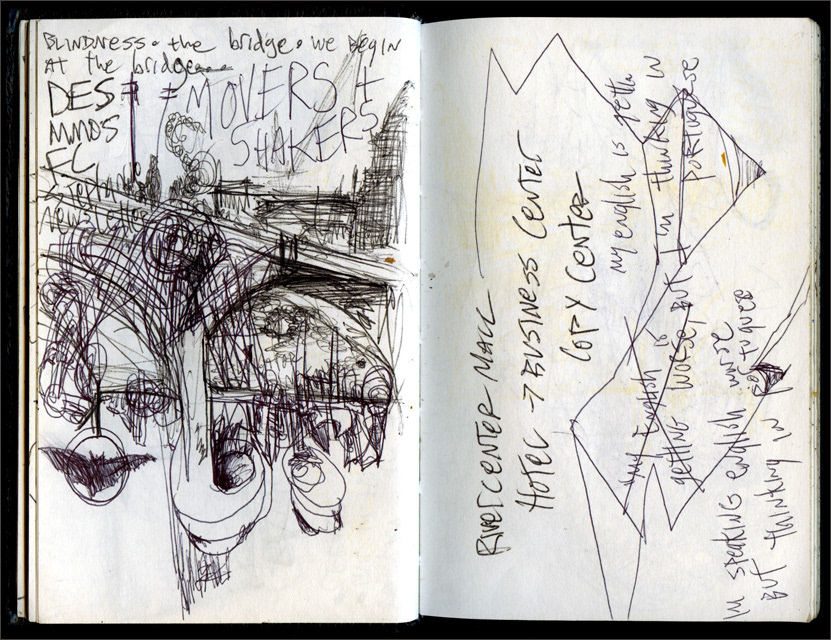 BLINDNESS. the bridge. we BEGIN
At the bridge....
MOVERS +
SHAKERS
DES
MMO'S
FC
Newsletter
RiverCENTER MALL
Hotel → BUSINESS CENTER
COPY CENTER
my english is gettn
I'm thinking in
PORTUGUESE
my English is
getting worse, BUT
IM SPEAKING english worse
BUT thinking in